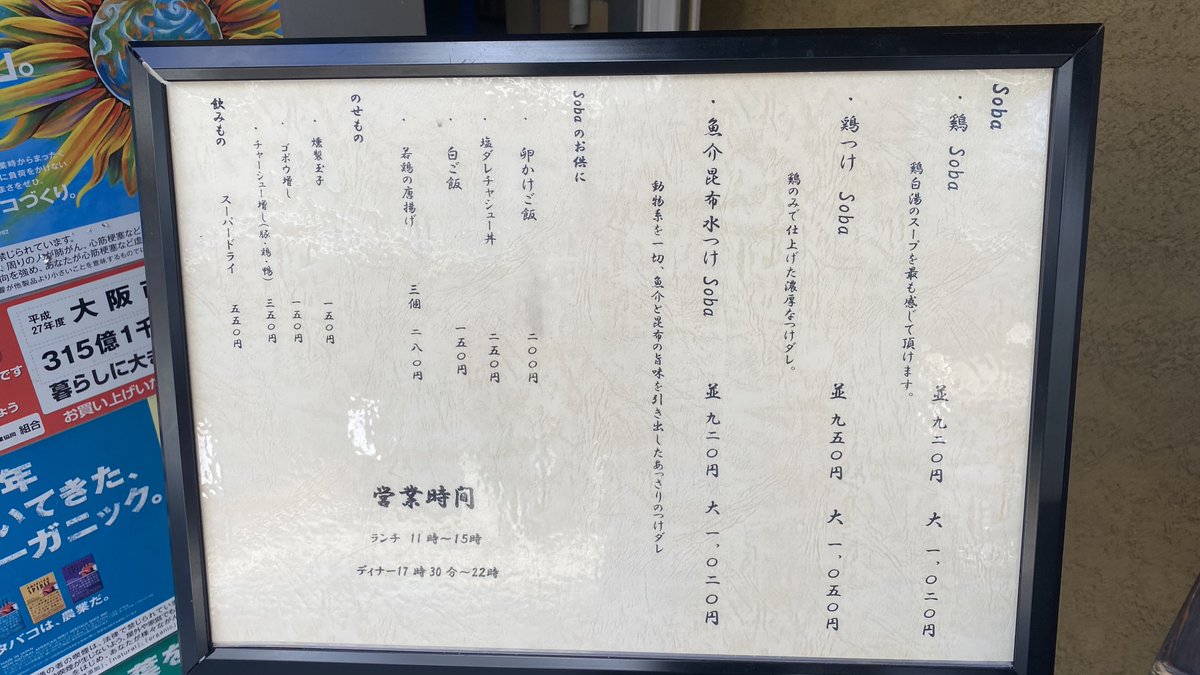 Soba
・鶏 Soba
鶏白湯のスープを最も感じて頂けます。
並 九二〇円 大 一、〇二〇円
・鶏つけ Soba
鶏のみで仕上げた濃厚なつけダレ。
並 九五〇円 大 一、〇五〇円
・魚介昆布水つけ Soba
動物系を一切、魚介と昆布の旨味を引き出したあっさりのつけダレ
並 九二〇円 大 一、〇二〇円
Sobaのお供に
・卵かけご飯 二〇〇円
・塩ダレチャシュー丼 二五〇円
・白ご飯 一五〇円
・若鶏の唐揚げ 三個 二八〇円
のせもの
・燻製玉子 一五〇円
・ゴボウ増し 一五〇円
・チャーシュー増し(豚・鶏・鴨) 三五〇円
飲みもの
スーパードライ 五五〇円
営業時间
ランチ 11時〜15時
ディナー17時30分〜22時
禁じられています。
平成
27年度
大阪
315億1千
暮らしに大き
お買い上げいた
組合
年
いてきた、
ーガニック。
タバコは、農業だ。
コづくり。